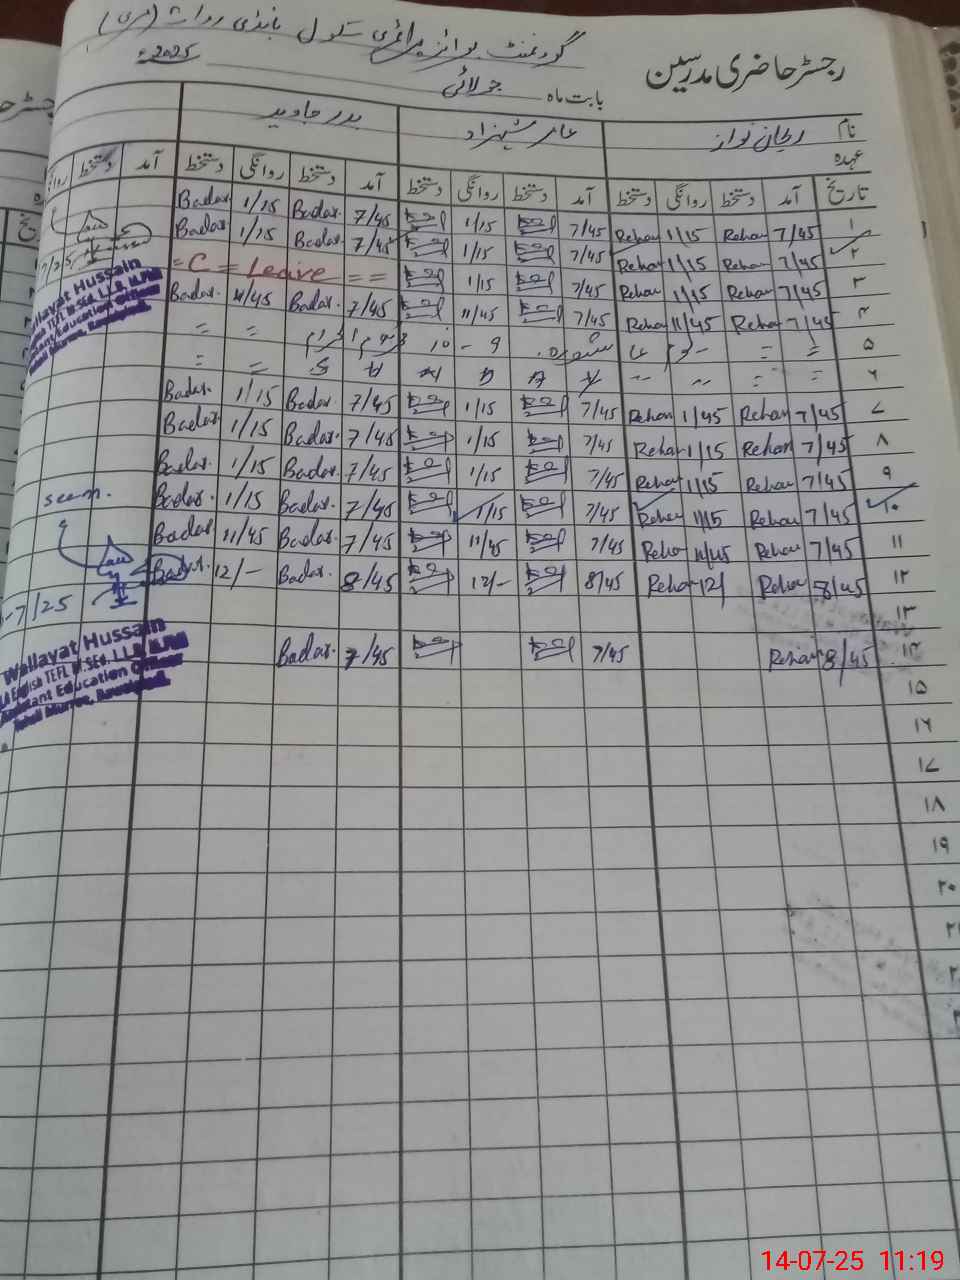 رجسٹر حاضری مدرسین
گورنمنٹ بوائز پرائمری سکول بانڈی روات (مری)
بابت ماہ جولائی 2025ء
نام ریحان نواز عامر شہزاد بدر جاوید
عہدہ
تاریخ آمد دستخط روانگی دستخط آمد دستخط روانگی دستخط آمد دستخط روانگی دستخط آمد دستخط
۱ 7/45 Rehan 1/15 Rehan 7/45 1/15 7/45 Badar 1/15 Badar
۲ 7/45 Rehan 1/15 Rehan 7/45 1/15 7/45 Badar. 1/15 Badar.
۳ 7/45 Rehan 1/15 Rehan 7/45 1/15 = C = Leave = =
۴ 7/45 Rehan 11/45 Rehan 7/45 11/45 7/45 Badar. 11/45 Badar.
۵ = = عا شورہ 9 - 10 محرم الحرام = =
۶
۷ 7/45 Rehan 1/45 Rehan 7/45 1/15 7/45 Badar. 1/15 Badar.
۸ 7/45 Rehan 1/15 Rehan 7/45 1/15 7/45 Badar. 1/15 Badar.
۹ 7/45 Rehan 1/15 Rehan 7/45 1/15 7/45 Badar. 1/15 Badar.
۱۰ 7/45 Rehan 1/15 Rehan 7/45 1/15 7/45 Badar. 1/15 Badar.
۱۱ 7/45 Rehan 11/45 Reha 7/45 11/45 7/45 Badar. 11/45 Badar
۱۲ 8/45 Rehan 12/ Rehan 8/45 12/- 8/45 Badar. 12/- Badar.
۱۳
۱۴ 8/45 Rehan 7/45 7/45 Badar.
۱۵
۱۶
۱۷
۱۸
۱۹
۲۰
seen.
7/25
Wallayat Hussain
M.A English TEFL M.SEd, L.L.B, M.Phil
Assistant Education Officer
Tehsil Murree, Rawalpindi.
14-07-25 11:19